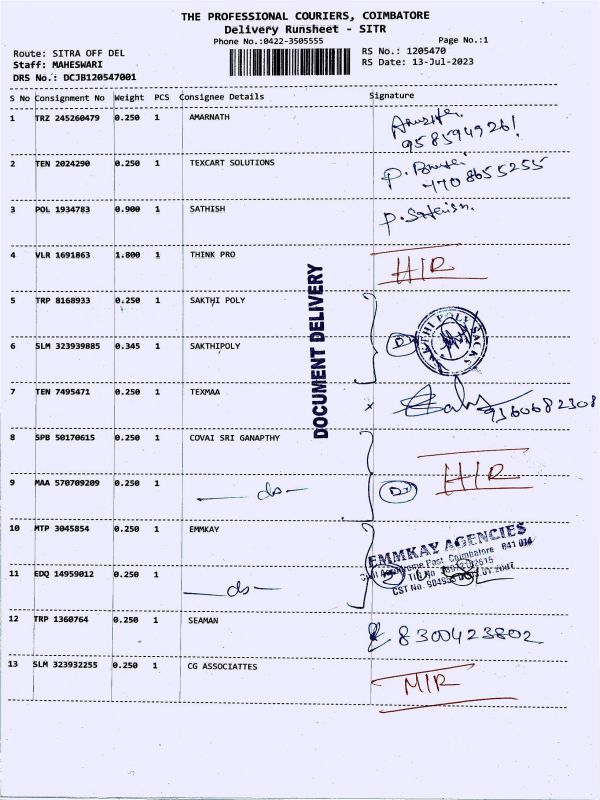 THE PROFESSIONAL COURIERS, COIMBATORE
Delivery Runsheet - SITR
Phone No.:0422-3505555
Page No.:1
Route: SITRA OFF DEL
RS No.: 1205470
Staff: MAHESWARI
RS Date: 13-Jul-2023
DRS No.: DCJB120547001
S No Consignment No Weight PCS Consignee Details Signature
1 TRZ 245260479 0.250 1 AMARNATH
9585949261
2 TEN 2024290 0.250 1 TEXCART SOLUTIONS
4708655255
3 POL 1934783 0.900 1 SATHISH P. Sathish.
4 VLR 1691863 1.800 1 THINK PRO HIR
DOCUMENT DELIVERY
5 TRP 8168933 0.250 1 SAKTHI POLY
SAKTHI POLY SACKS
6 SLM 323939885 0.345 1 SAKTHIPOLY
7 TEN 7495471 0.250 1 TEXMAA 9360682308
8 SPB 50170615 0.250 1 COVAI SRI GANAPTHY HIR
9 MAA 570709209 0.250 1 -do-
10 MTP 3045854 0.250 1 EMMKAY
EMMKAY AGENCIES
Post, Coimbatore 641 014
11 EDQ 14959012 0.250 1 -do-
CST No.
12 TRP 1360764 0.250 1 SEAMAN 8300423802
13 SLM 323932255 0.250 1 CG ASSOCIATTES MIR